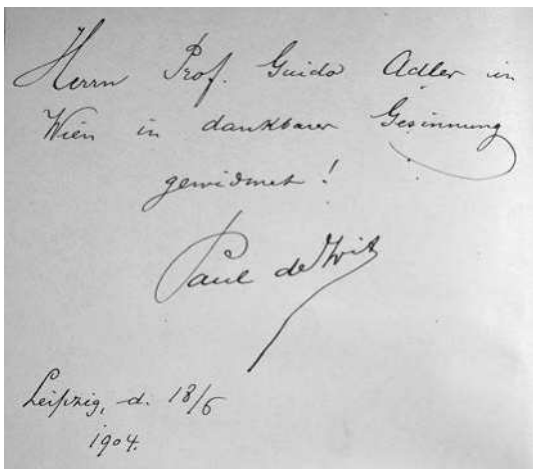 Herrn Prof. Guido Adler in
Wien in dankbarer Gesinnung
gewidmet!
Paul de Wit
Leipzig, d. 18/6
1904.